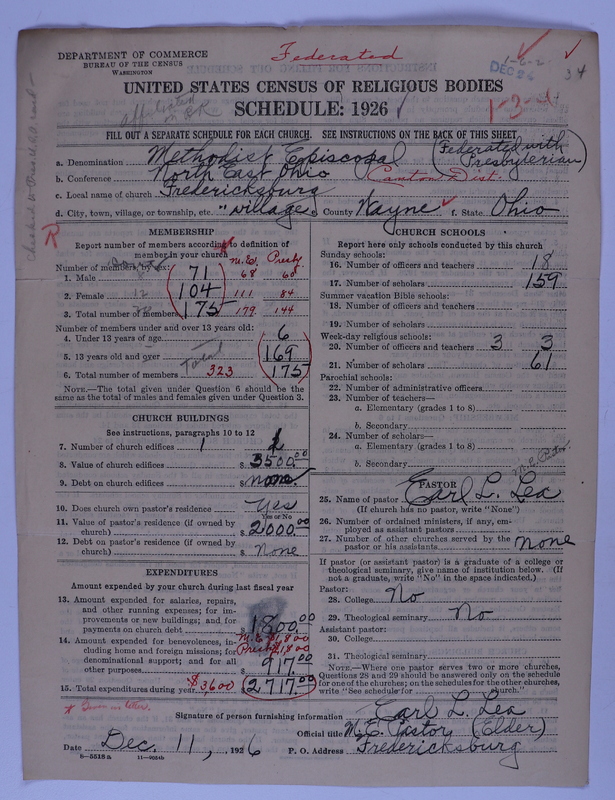 DEPARTMENT OF COMMERCE
BUREAU OF THE CENSUS
WASHINGTON
Federated
1-6-2
DEC 24
34
UNITED STATES CENSUS OF RELIGIOUS BODIES
SCHEDULE: 1926
1-3-
FILL OUT A SEPARATE SCHEDULE FOR EACH CHURCH. SEE INSTRUCTIONS ON THE BACK OF THIS SHEET
a. Denomination Methodist Episcopal (Federated with Presbyterian)
b. Conference North East Ohio Canton Dist.
c. Local name of church Fredericksburg
d. City, town, village, or township, etc. "village" e. County Wayne f. State Ohio
R
MEMBERSHIP
Report number of members according to definition of
member in your church M.E. Presby
Number of members by sex:
1. Male 71 68 60
2. Female 12 104 111 84
3. Total number of members 175 179 144
Number of members under and over 13 years old:
4. Under 13 years of age 6
5. 13 years old and over 169
6. Total number of members Total 323 175
NOTE.—The total given under Question 6 should be the
same as the total of males and females given under Question 3.
CHURCH BUILDINGS
See instructions, paragraphs 10 to 12
7. Number of church edifices 1 1
8. Value of church edifices $ 3500.00
9. Debt on church edifices $ None
10. Does church own pastor's residence? Yes
Yes or No
11. Value of pastor's residence (if owned by
church) $ 2000.00
12. Debt on pastor's residence (if owned by
church) $ None
EXPENDITURES
Amount expended by your church during last fiscal year
13. Amount expended for salaries, repairs,
and other running expenses; for im-
provements or new buildings; and for
payments on church debt $ 1800.00
M.E. $1,800
14. Amount expended for benevolences, in-
cluding home and foreign missions; for Presby $1,800
denominational support; and for all
other purposes 917.00
15. Total expenditures during year $3,600 $ 2717.00
CHURCH SCHOOLS
Report here only schools conducted by this church
Sunday schools:
16. Number of officers and teachers 18
17. Number of scholars 159
Summer vacation Bible schools:
18. Number of officers and teachers
19. Number of scholars
Week-day religious schools:
20. Number of officers and teachers 3 3
21. Number of scholars 61
Parochial schools:
22. Number of administrative officers
23. Number of teachers—
a. Elementary (grades 1 to 8)
b. Secondary
24. Number of scholars—
a. Elementary (grades 1 to 8)
b. Secondary
M.E. Pastor
PASTOR
25. Name of pastor Earl L. Lea
(If church has no pastor, write "None")
26. Number of ordained ministers, if any, em-
ployed as assistant pastors
27. Number of other churches served by the
pastor or his assistants None
If pastor (or assistant pastor) is a graduate of a college or
theological seminary, give name of institution below. (If
not a graduate, write "No" in the space indicated.)
Pastor:
28. College No
29. Theological seminary No
Assistant pastor:
30. College
31. Theological seminary
NOTE.—Where one pastor serves two or more churches,
Questions 28 and 29 should be answered only on the schedule
for one of the churches; on the schedules for the other churches,
write "See schedule for church."
Signature of person furnishing information Earl L. Lea
Official title M.E. Pastor (Elder)
Date Dec. 11, 1926
P. O. Address Fredericksburg
8-5518 a 11-9084b